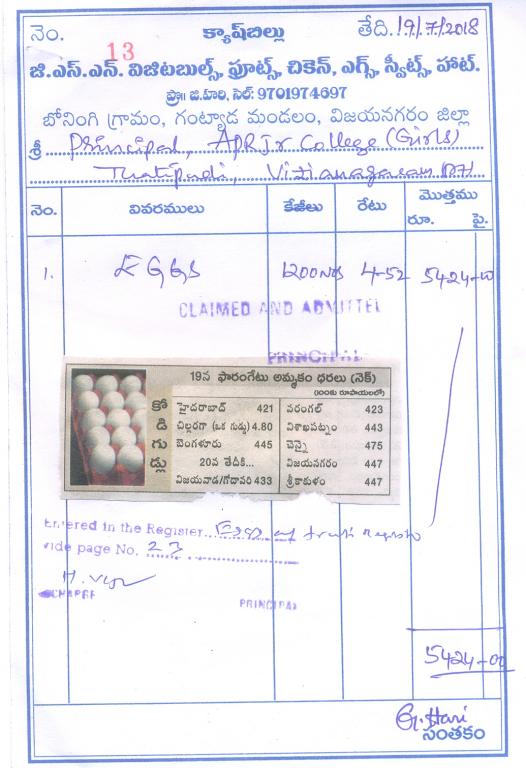 నెం. 13 క్యాష్‌బిల్లు తేది. 19/7/2018
జి.ఎస్.ఎన్. విజిటబుల్స్, ఫ్రూట్స్, చికెన్, ఎగ్స్, స్వీట్స్, హాట్.
ప్రొ॥ జి.హరి, సెల్: 9701974697
బోనింగి గ్రామం, గంట్యాడ మండలం, విజయనగరం జిల్లా
శ్రీ Principal, APRJr College (Girls)
Thatipudi, Vizianagaram
నెం. వివరములు కేజీలు రేటు మొత్తము
రూ. పై.
1. EGGS 1200Nos 4-52 5424-00
CLAIMED AND ADMITTEL
PRINCIPAL
19న ఫారంగేటు అమ్మకం ధరలు (నెక్)
(100కు రూపాయలలో)
కోడిగుడ్లు
హైదరాబాద్ 421 వరంగల్ 423
చిల్లరగా (ఒక గుడ్డు) 4.80 విశాఖపట్నం 443
బెంగళూరు 445 చెన్నై 475
20వ తేదీకి... విజయనగరం 447
విజయవాడ/గోదావరి 433 శ్రీకాకుళం 447
Entered in the Register
vide page No. 23
PRINCIPAL
5424-00
G. Hari
సంతకం